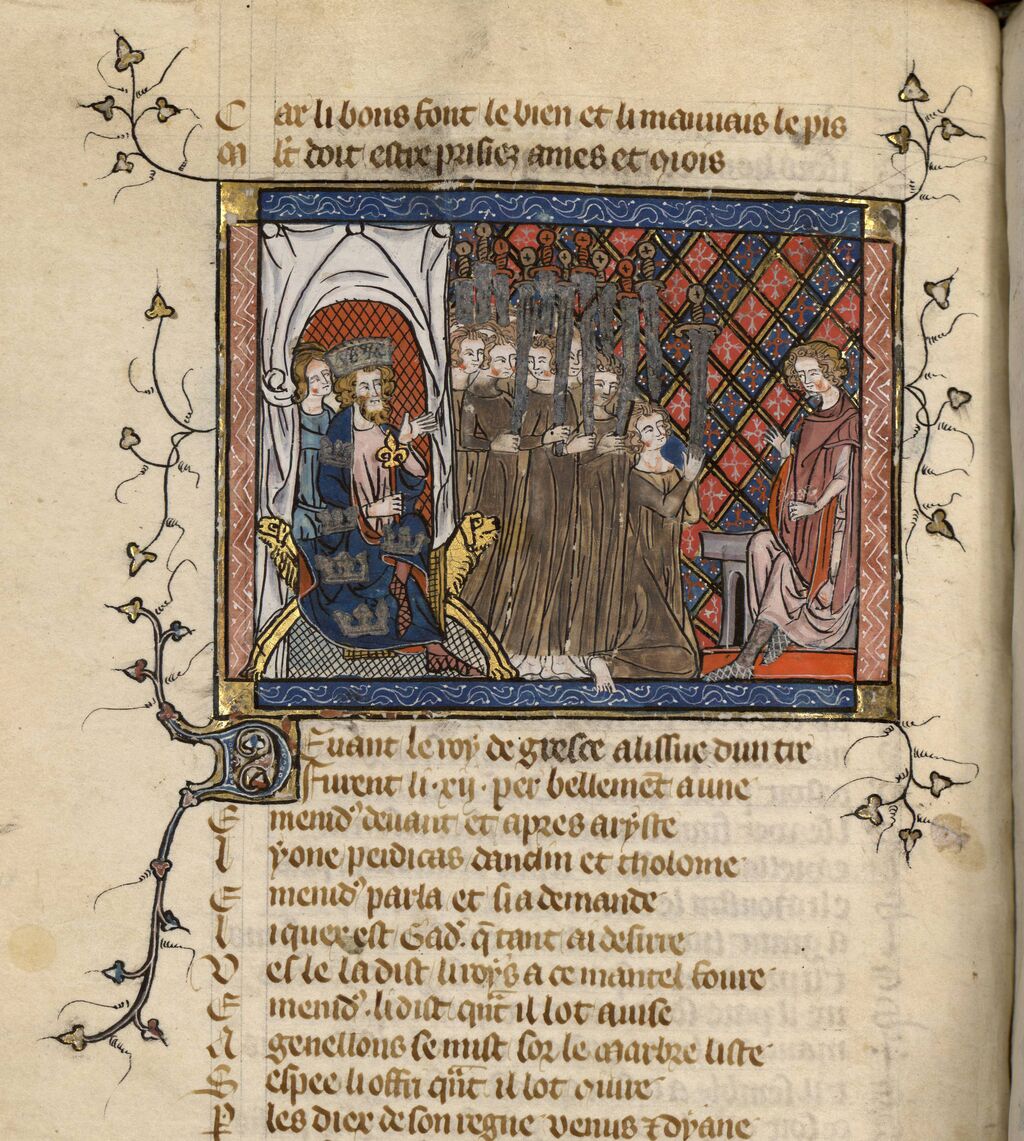 C ar li bons font le bien et li mauuais le pis
M lt doit estre prisiez ames et chois
Deuant le roy de gresce a lissue dun tre
Furent li .xij. per bellement aune
E menid' deuant et apres aryste
L yone perdicas danclin et tholome
E menid' parla et si a demande
L i quex est Gad'. q̃ tant ai desirre
V es le la dist li roys a ce mantel foure
E menid'. li dist qñt il lot auise
A genellons se mist sor le marbre liste
S espee li offri qñt il lot
P les diex de son regne venus ⁊ dyane